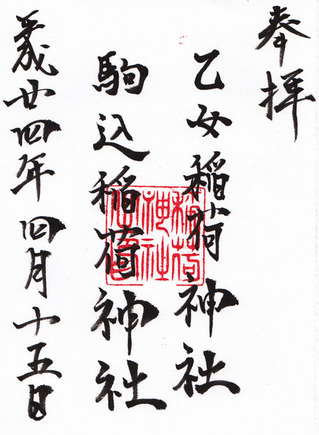 奉拝
乙女稲荷神社
駒込稲荷神社
平成廿四年四月十五日